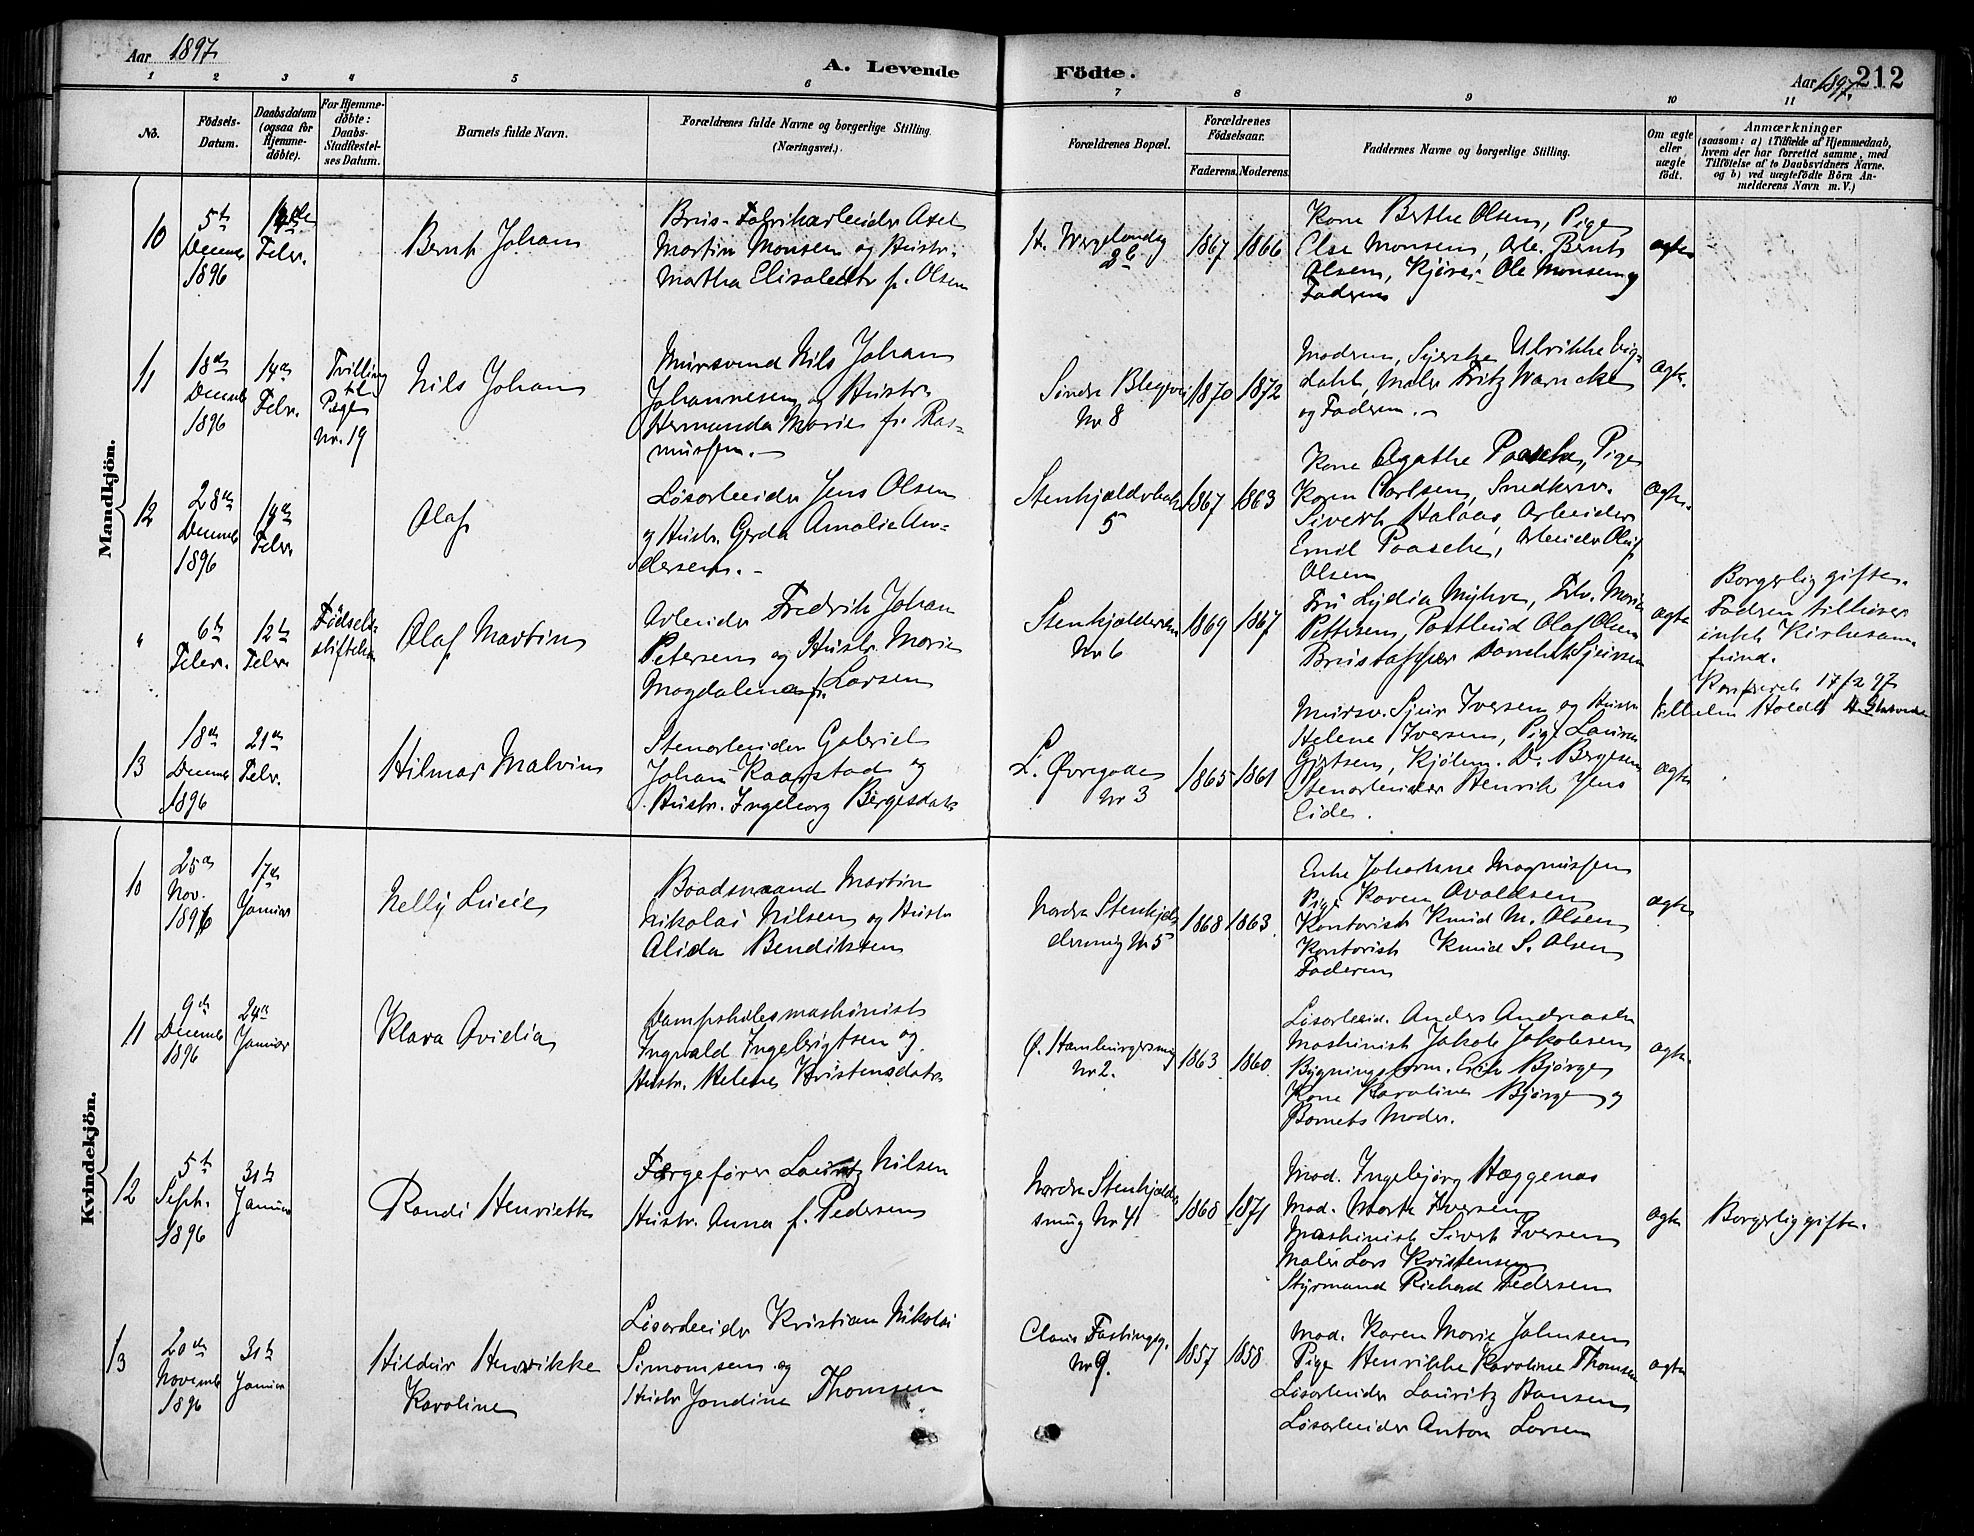 Aar 1897.
A. Levende Födte.
Aar 1897. 212
1 2 3 4 5 6 7 8 9 10 11
No.
Födsels-
Datum.
Daabsdatum
(ogsaa for
Hjemme-
döbte).
For Hjemme-
döbte:
Daabs-
Stadfæstel-
ses Datum.
Barnets fulde Navn.
Forældrenes fulde Navne og borgerlige Stilling.
(Næringsvei.)
Forældrenes Bopæl.
Forældrenes
Födselsaar.
Faderens. Moderens.
Faddernes Navne og borgerlige Stilling.
Om ægte
eller
uægte
födt.
Anmærkninger
(saasom: a) i Tilfælde af Hjemmedaab,
hvem der har forrettet samme, med
Tilföielse af to Daabsvidners Navne,
og b) ved uægtefödte Börn An-
melderens Navn m. V.)
Mandkjön.
10
5te
Decemb
1896
14de
Febr.
Bernt Johan
Brus-Fabrikarbeider Axel
Martin Monsen og Hustr.
Martha Elisabeth f. Olsen
H. Wergelandsg
1867 1866
Kone Berthe Olsen, Pige
Else Monsen, Arb. Bernt
Olsen, Ole Monsen og
Faderen
ægte
11
18de
Decemb
1896
14de
Febr.
Tvilling
til
Pige
Nr. 19
Nils Johan
Mursvend Nils Johan
Johannesen og Hustr.
Hermanda Marie f. Ras-
mussen.
Søndre Blegevei
Nr 8
1870 1872
Moderen, Syerske Ulrikke Vig-
dahl, Maler Fritz Warncke
og Faderen.
ægte.
12
28de
Decemb
1896
14de
Febr.
Olaf
Løsarbeider Jens Olsen
og Hustr. Gerda Amalie An-
dersen.
5
1867 1863
Kone Agathe Paasche, Pige
Karen Carlsen, Snedkersv.
Sivert Halaas, Arbeider
Emil Paasche, Arbeider Oluf
Olsen
ægte.
"
6te
Febr.
12te
Febr.
Fødsels-
stiftelsen
Olaf Martin
Arbeider Fredrik Johan
Petersen og Hustr. Marie
Magdalena f. Larsen
Nr 6
1869 1867
Fru Lydia Myhre, Frk. Marie
Pettersen, Postbud Olaf Olsen
Brustapper
ægte
Borgerlig gifte.
Faderen tilhører
intet Kirkesam-
fund.
Konfereret 17/2 97
Vilhelm Holdt
13
18de
Decemb
1896
21de
Febr.
Hilmar Malvin
Stenarbeider Gabriel
Johan Kaarstad og
Hustr. Ingeborg Børgesdatr
L. Øvregaden
Nr 3
1865 1861
Mursv. Sjur Iversen og Hustru
Helene Iversen, Pige Laurine
Gjertsen, Kjølem. D. Børgesen
Stenarbeider Henrik Jens
Eide.
ægte
Kvindekjön.
10
25de
Nov.
1896
17de
Januar
Nelly Lucie
Baadsmand Martin
Nikolai Nilsen og Hustr
Alida Bendiksten
Nordre Stenkjel-
dersmug Nr 5
1868 1863
Enke Johanne Magnussen
Pige Karen Avaldsen
Kontorist Knud M. Olsen
Kontorist Knud S. Olsen
Faderen
ægte
11
9de
Decemb
1896
24de
Januar
Klara Ovidia
Dampskibsmaskinist
Ingvald Ingebrigtsen og
Hustr. Helene Kristensdatr
Ø. Hamburgersmug
Nr 2.
1863 1860
Løsarbeid. Anders Andreasen
Maskinist Jakob Jakobsen
Bygningsform. Erik Bjørge
Kone Karoline Bjørge og
Barnets Moder.
ægte.
12
5te
Septr.
1896
31te
Januar
Randi Henriette
Færgefører Lauritz Nilsen
Hustr. Anna f. Pedersen
Nordre Stenkjelder
smug Nr 41
1868 1871
Mad. Ingebjørg Hæggenas
Mad. Marte Iversen
Maskinist Sivert Iversen
Maler Lars Kristensen
Styrmand Richard Pedersen
ægte
Borgerlig gifte.
13
20de
Novemb
1896
31te
Januar
Hildur Henrikke
Karoline
Løsarbeider Kristian Nikolai
Simonsen og
Hustr Jondine Thomsen
Claus Fastingsg.
Nr 9.
1857 1858
Mad. Karen Marie Johnsen
Pige Henrikke Karoline Thomsen
Løsarbeider Lauritz Hansen
Løsarbeider Anton Larsen
ægte